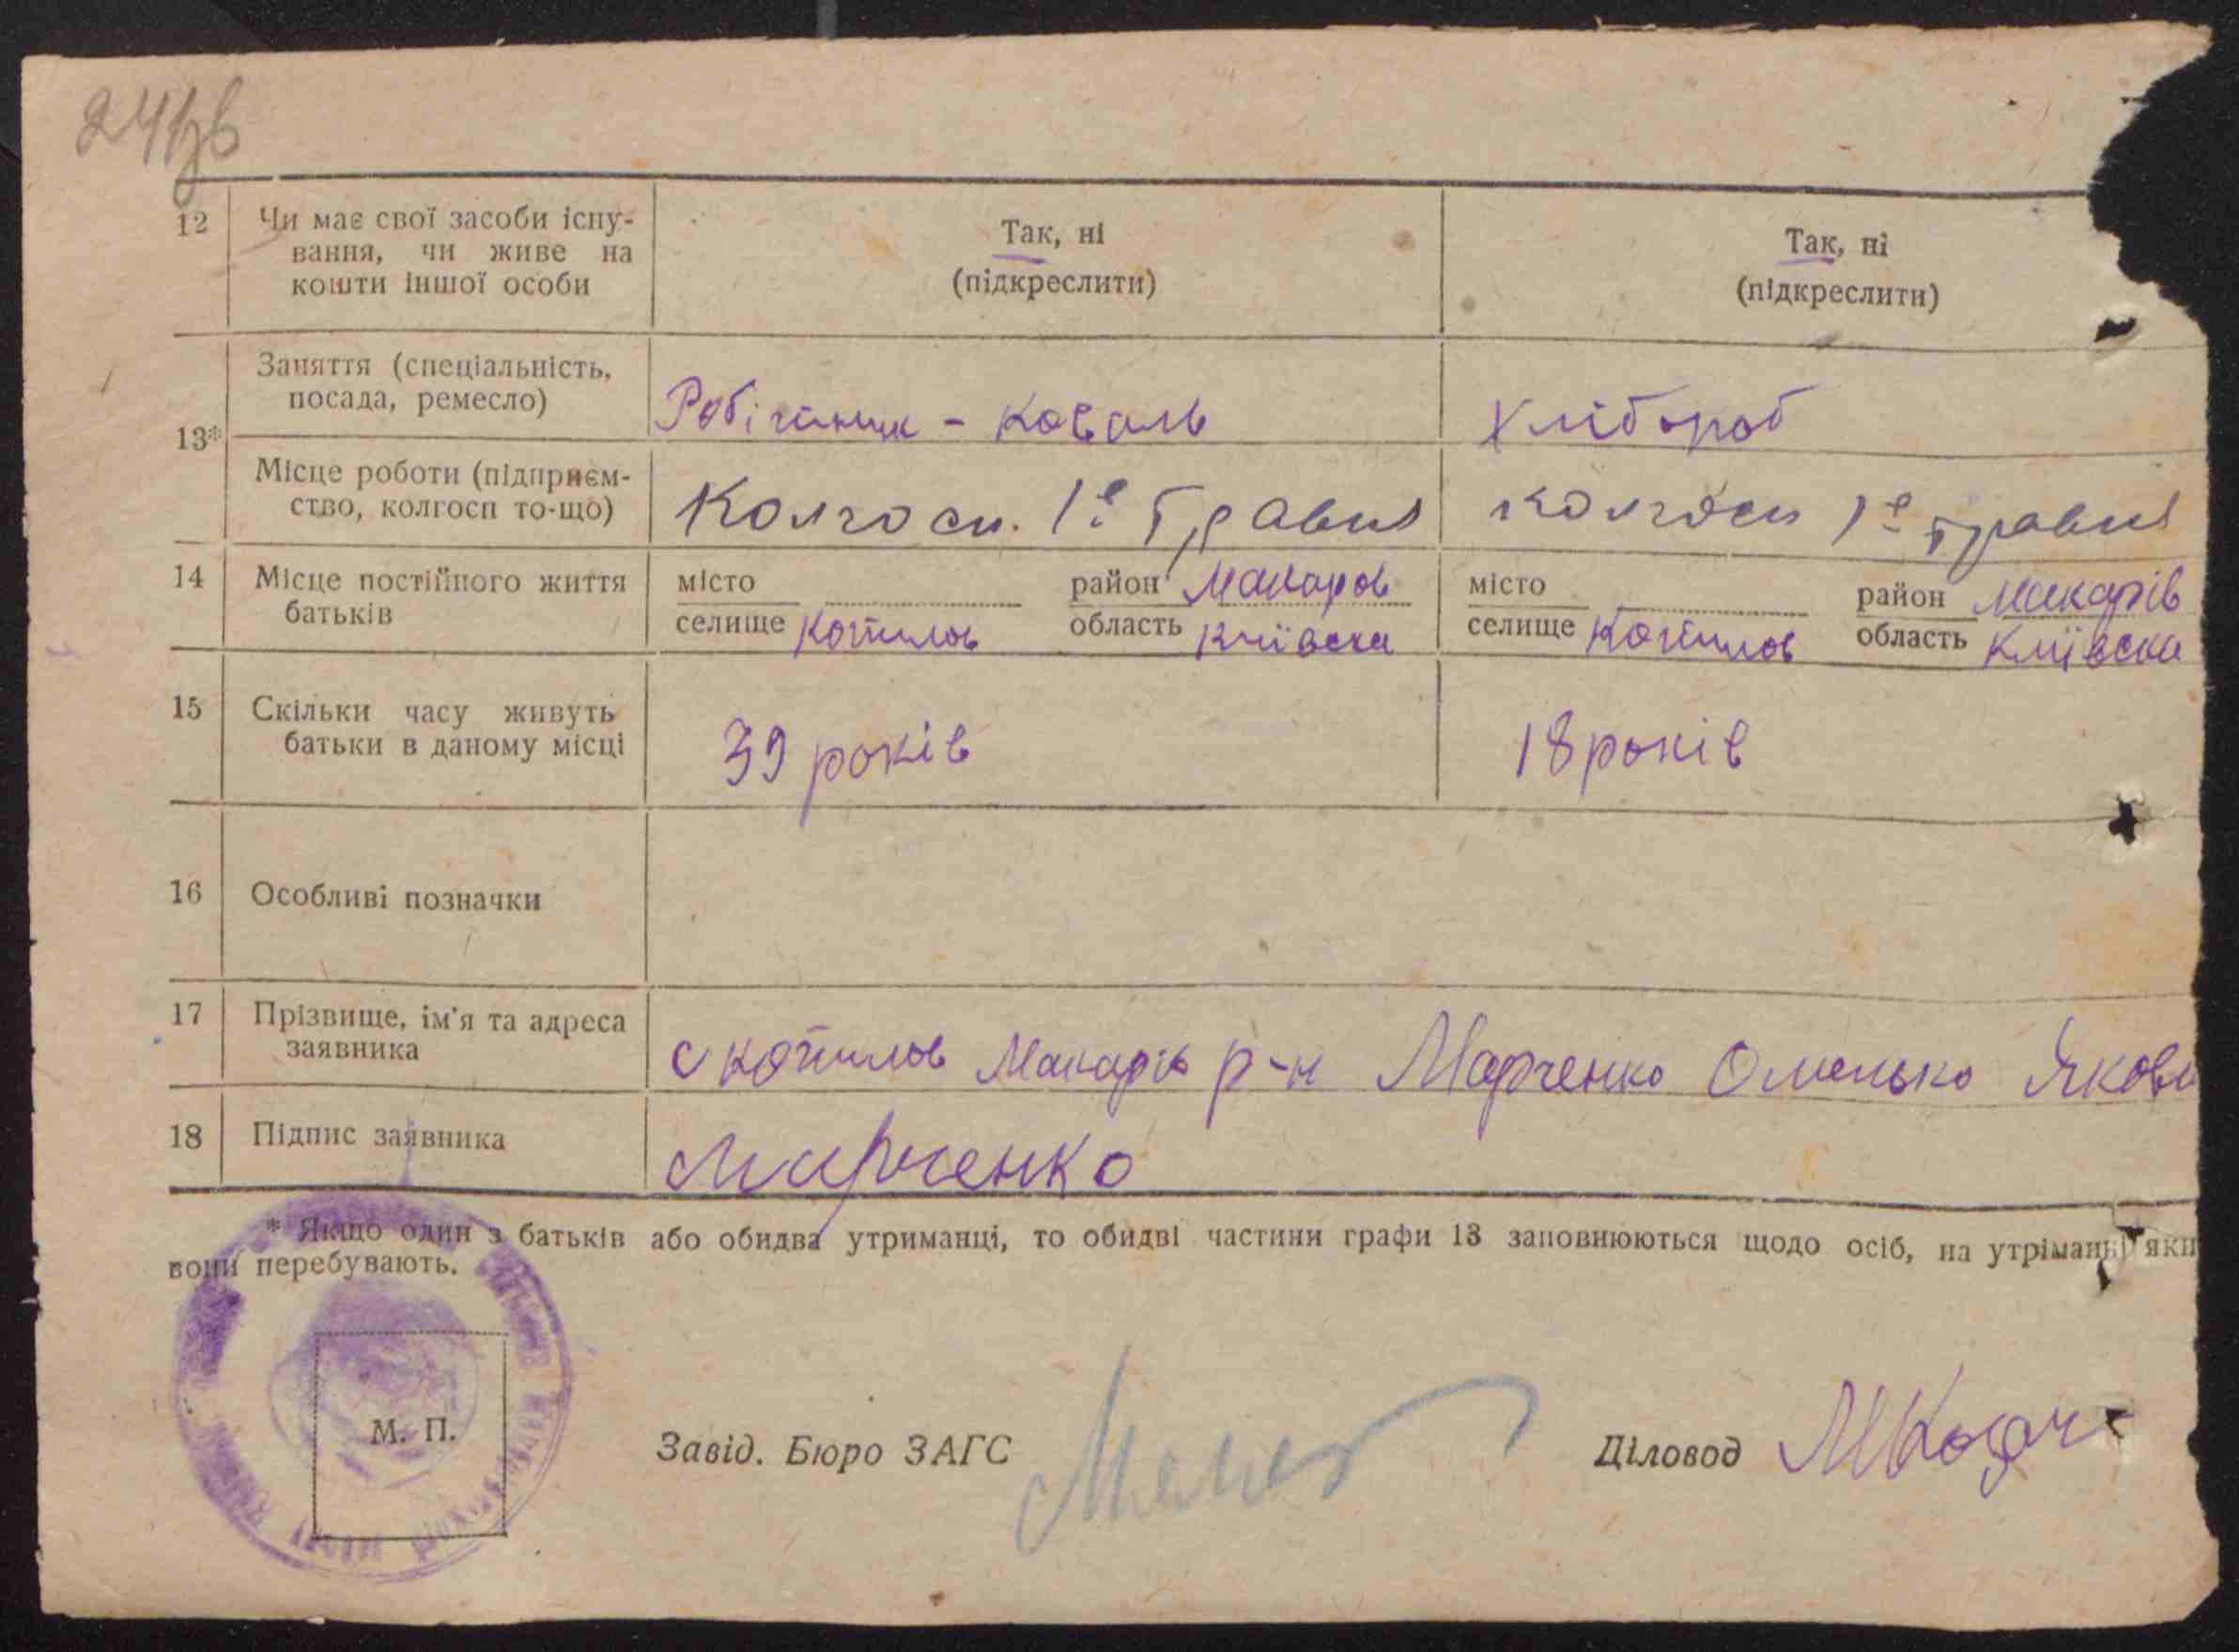 24 зв
12 Чи має свої засоби існу- Так, ні Так, ні
вання, чи живе на (підкреслити) (підкреслити)
кошти іншої особи
13* Заняття (спеціальність, Робітник - Коваль Хлібороб
посада, ремесло)
Місце роботи (підприєм- Колгосп. 1е Травня Колгосп 1е травня
ство, колгосп то-що)
14 Місце постійного життя місто район Макаров місто район Макарів
батьків селище Копилов область Київска селище Копилов область Київска
15 Скільки часу живуть 39 років 18 років
батьки в даному місці
16 Особливі позначки
17 Прізвище, ім'я та адреса с Копилов Макарів р-н Марченко Омелько Якови
заявника
18 Підпис заявника Марченко
* Якщо один з батьків або обидва утриманці, то обидві частини графи 13 заповнюються щодо осіб, на утріманні яки
вони перебувають.
М. П.
Завід. Бюро ЗАГС Діловод